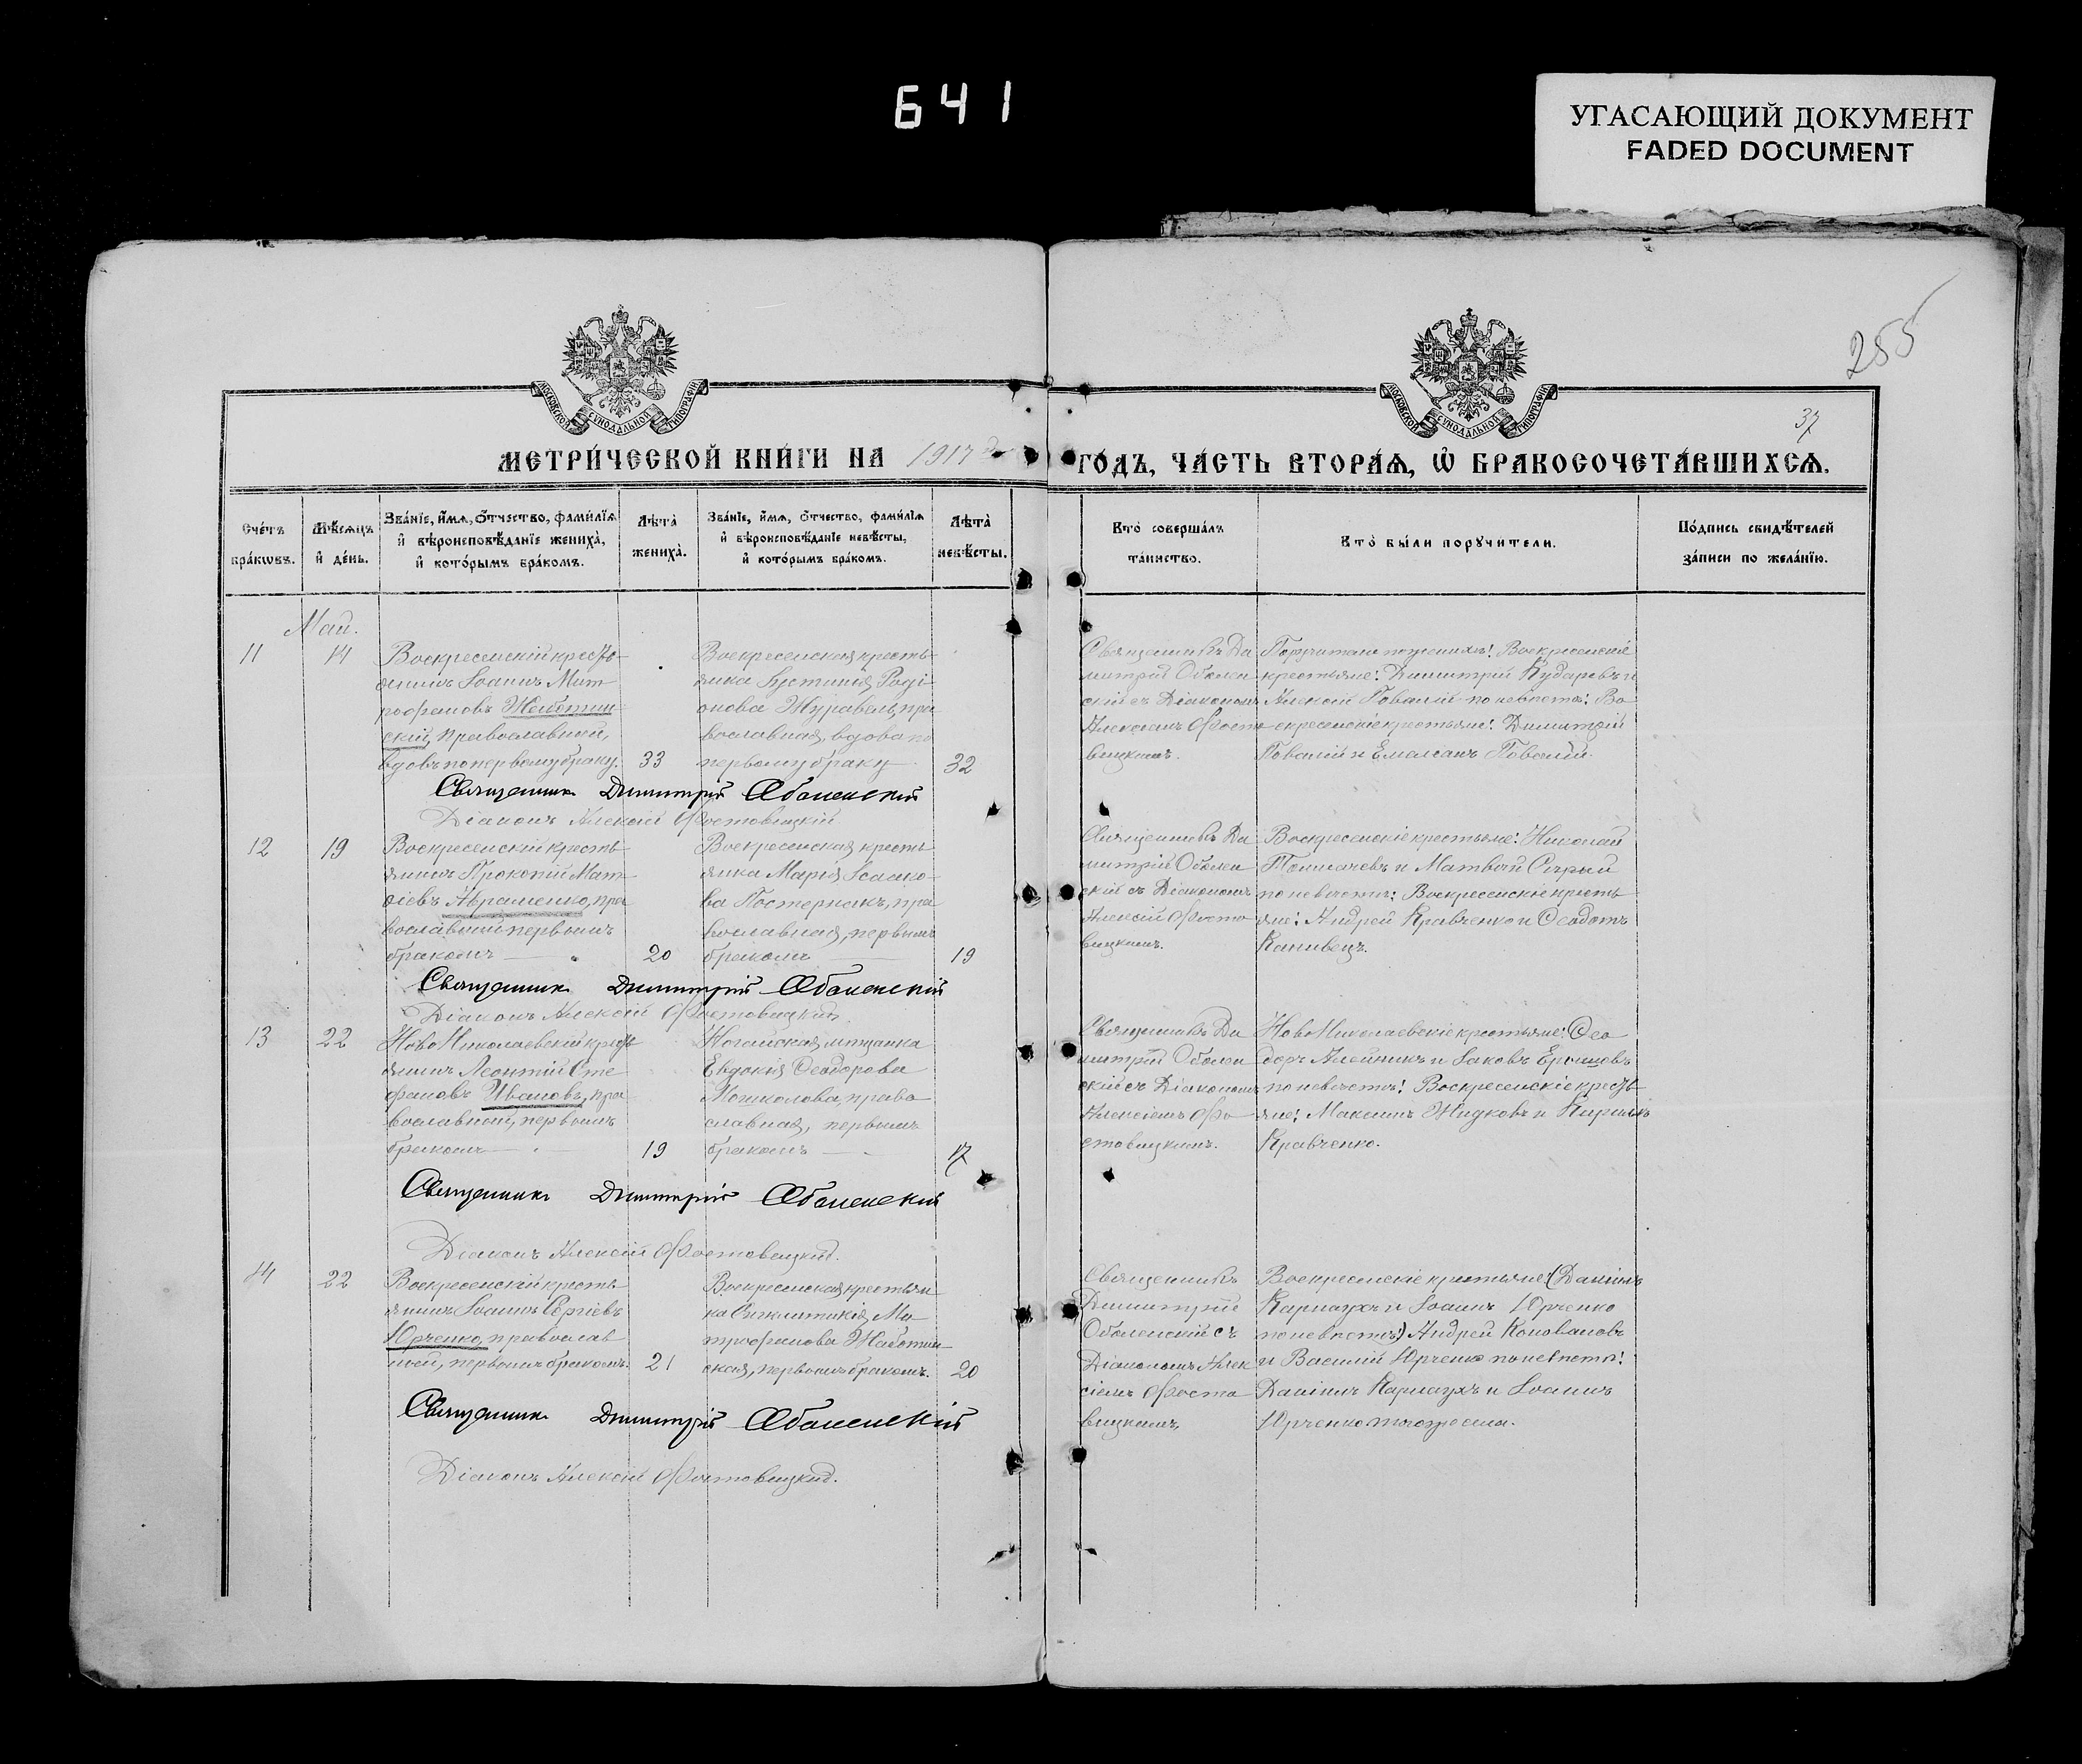 641
УГАСАЮЩИЙ ДОКУМЕНТ
FADED DOCUMENT
255
37
МОСКОВСКОЙ СѴНОДАЛЬНОЙ ТИПОГРАФІИ
МОСКОВСКОЙ СѴНОДАЛЬНОЙ ТИПОГРАФІИ
МЕТРИ́ЧЕСКОЙ КНИ́ГИ НА 1917 ГО́ДЪ, ЧА́СТЬ ВТОРА́Ѧ, Ѽ БРАКОСОЧЕТА́ВШИХСѦ.
Сче́тъ бра́кѡвъ.
Мѣ́сѧцъ и҆ де́нь.
Зва́нїе, и҆́мѧ, ѻ҆́тчество, фами́лїѧ и҆ вѣроисповѣ́данїе жениха̀, и҆ кото́рымъ бра́комъ.
Лѣ́та̀ жениха̀.
Зва́нїе, и҆́мѧ, ѻ҆́тчество, фами́лїѧ и҆ вѣроисповѣ́данїе невѣ́сты, и҆ кото́рымъ бра́комъ.
Лѣ́та̀ невѣ́сты.
Кто̀ соверша́лъ та́инство.
Кто̀ бы́ли порꙋчи́тели.
По́дпись свидѣ́телей за́писи по жела́нїю.
Май.
11
14
Воскресенскій кресть-
янинъ Іоаннъ Мит-
рофановъ Жаботин-
скій, православный,
вдовъ по первому браку.
33
Воскресенская кресть-
янка Іустинія Роді-
онова Журавель, пра-
вославная, вдова по
первому браку
32
Священникъ Ди
митрій Оболен
скій съ Діакономъ
Алексіемъ Фосто
вицкимъ.
Поручители по женихѣ: Воскресенскіе
крестьяне: Димитрій Кударевъ и
Алексій Говалій по невѣстѣ: Во-
скресенскіе крестьяне: Димитрій
Говалій и Емеліанъ Говалій.
Священникъ Димитрій Оболенскій
Діаконъ Алексій Фостовицкій
12
19
Воскресенскій кресть
янинъ Прокопій Мат-
ѳіевъ Авраменко, пра
вославный первымъ
бракомъ
20
Воскресенская кресть
янка Марія Исаако-
ва Постернакъ, пра
вославная, первымъ
бракомъ
19
Священникъ Ди
митрій Оболен
скій съ Діакономъ
Алексій Фосто
вицкимъ.
Воскресенскіе крестьяне: Николай
Толмачевъ и Матвѣй Сѣрый
по невѣстѣ: Воскресенскіе кресть
яне: Андрей Кравченко и Ѳеодотъ
Канивецъ.
Священникъ Димитрій Оболенскій
Діаконъ Алексій Фостовицкій.
13
22
Ново Николаевскій кресть
янинъ Леонтій Сте
фановъ Ивановъ, пра
вославный, первымъ
бракомъ
19
Ногайская мѣщанка
Евдокія Ѳеодорова
право
славная, первымъ
бракомъ
17
Священникъ Ди
митрій Оболен
скій съ Діакономъ
Алексіемъ Фо
стовицкимъ.
Ново Николаевскіе крестьяне: Ѳео
доръ Алейникъ и Іаковъ
по невѣстѣ: Воскресенскіе кресть
яне: Максимъ Жидковъ и Кириллъ
Кравченко.
Священникъ Димитрій Оболенскій
Діаконъ Алексій Фостовицкій.
14
22
Воскресенскій кресть
янинъ Іоаннъ Сергіевъ
Юрченко, православ
ный, первымъ бракомъ.
21
Воскресенская крестьян
ка Синклитикія Ми
трофанова Жаботин
ская, первымъ бракомъ.
20
Священникъ
Димитрій
Оболенскій съ
Діакономъ Алек
сіемъ Фосто
вицкимъ,
Воскресенскіе крестьяне: (Даніилъ
Карнаухъ и Іоаннъ Юрченко
по невѣстѣ:) Андрей Коноваловъ
и Василій Юрченко по невѣстѣ:
Даніилъ Карнаухъ и Іоаннъ
Юрченко
Священникъ Димитрій Оболенскій
Діаконъ Алексій Фостовицкій.